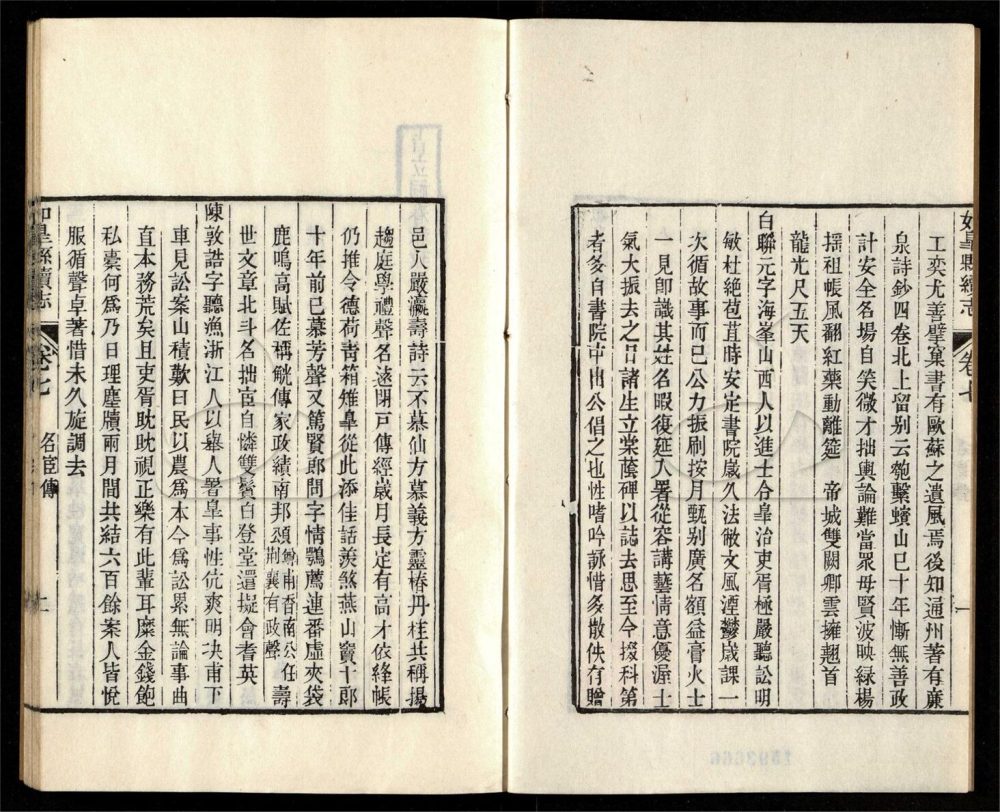 如皋縣續志 卷七
工奕尤善擘窠書有歐蘇之遺風焉後知通州著有廉
泉詩鈔四卷北上留别云匏繫蠙山巳十年慚無善政
計安全名場自笑微才拙輿論難當眾母賢波映緑楊
摇祖帳風翻紅藥動離筵 帝城雙闕卿雲擁翹首
龍光尺五天
白聯元字海峯山西人以進士令皋治吏胥極嚴聽訟明
敏杜絶苞苴時安定書院嵗久法敝文風湮鬱嵗課一
次循故事而已公力振刷按月甄别廣名額益膏火士
一見即識其姓名暇復延入署從容講藝情意優渥士
氣大振去之日諸生立棠蔭碑以誌去思至今掇科第
者多自書院中出公倡之也性嗜吟詠惜多散佚行贈
邑人嚴瀛壽詩云不慕仙方慕義方靈椿丹桂共稱揚
趨庭學禮聲名遠閉戸傳經嵗月長定有高才依絳帳
仍推令德荷靑箱雉皋從此添佳話羨煞燕山竇十郎
十年前已慕芳聲又篤賢郎問字情鶚薦連番虛夾袋
鹿鳴高賦佐稱觥傳家政績南邦頌鄉甫香南公任荆襄有政聲壽
世文章北斗名拙宦自憐雙鬢白登堂還擬會耆英
陳敦誥字聽漁浙江人以舉人署皋事性伉爽明决甫下
車見訟案山積歎曰民以農爲本今爲訟累無論事曲
直本務荒矣且吏胥眈眈視正樂有此輩耳糜金錢飽
私橐何爲乃日理塵牘兩月間共結六百餘案人皆悅
服循聲卓著惜未久旋調去
如皋縣續志 卷七 名宦傳 上